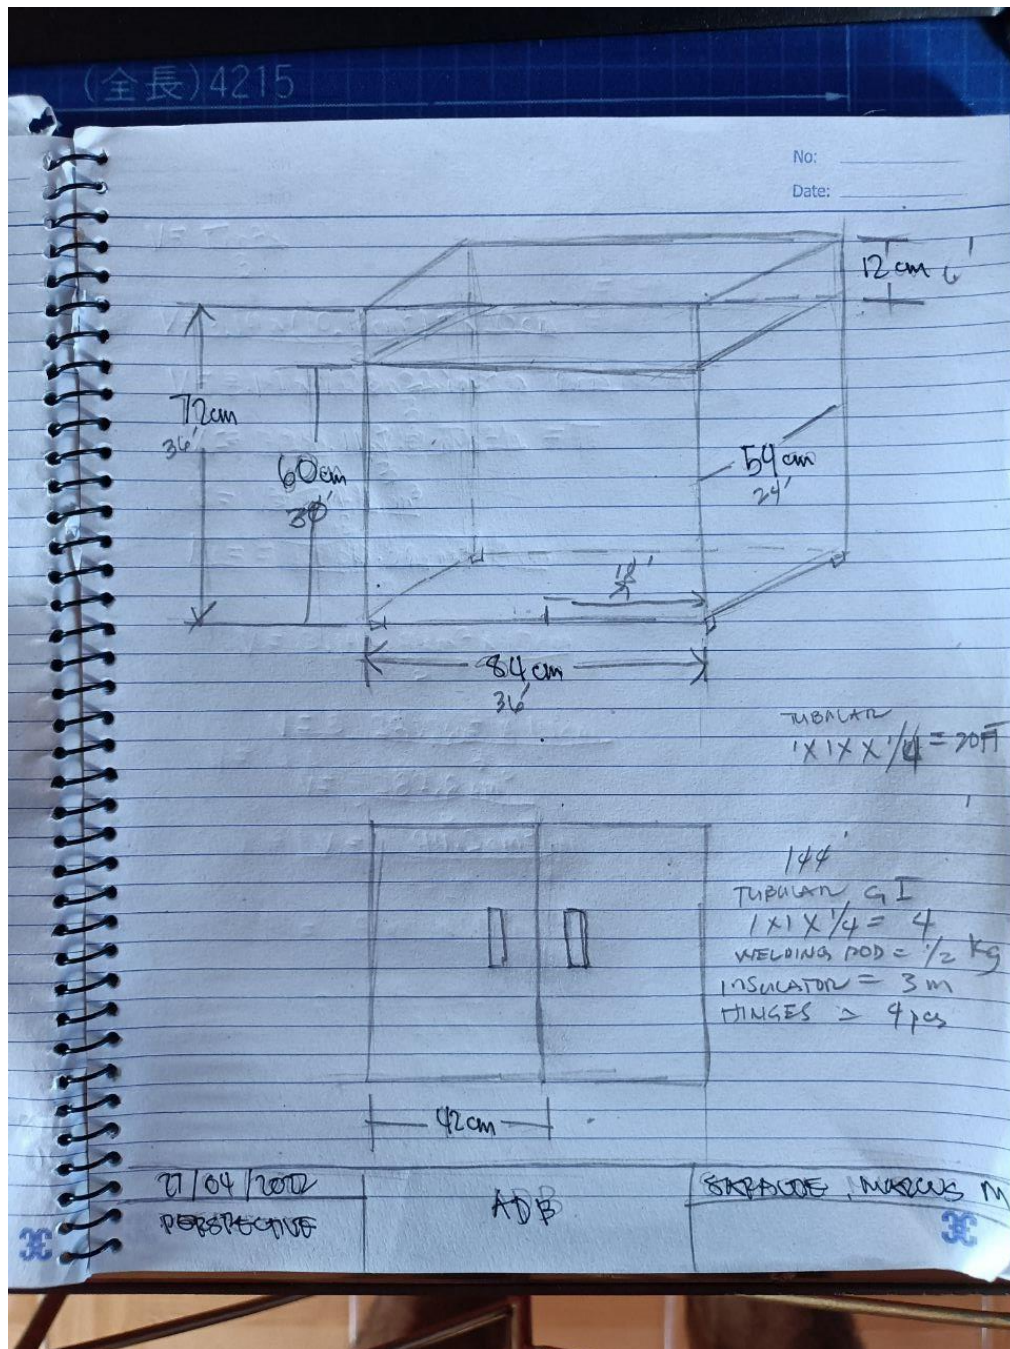 (全長)4215
No:
Date:
12 cm 6'
72cm
36'
60cm
30'
54 cm
24'
18'
84 cm
36'
TUBULAR
1X1X X 1/4 = 20FT
144'
TUBULAR GI
1X1X1/4 = 4
WELDING ROD = 1/2 Kg
INSULATOR = 3m
HINGES = 4 pcs
42cm
27/04/2022
PERSPECTIVE
ADB
MARCUS M